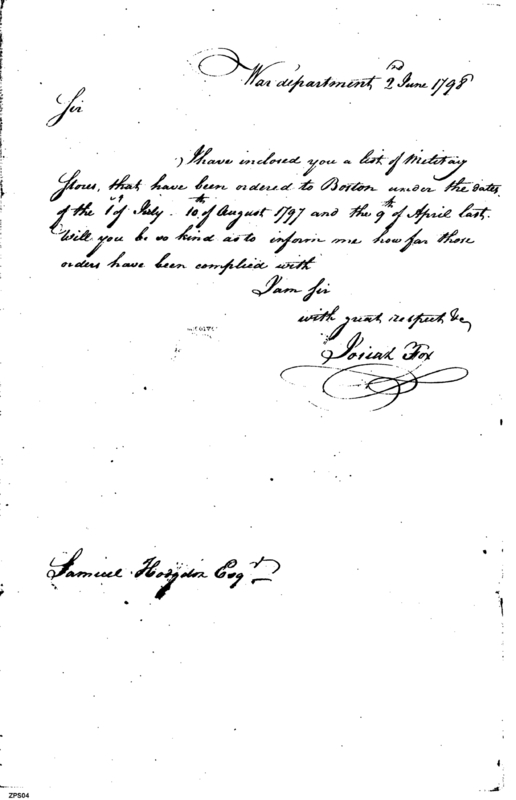 War department 2nd June 1798
Sir
I have inclosed you a list of Military
Stores, that have been ordered to Boston under the dates
of the 1st of July. 10th of August 1797 and the 9th of April last.
Will you be so kind as to inform me how far those
orders have been complied with
I am Sir
with great respect &c
Josiah Fox
Samuel Hodgdon Esqr
ZPS04